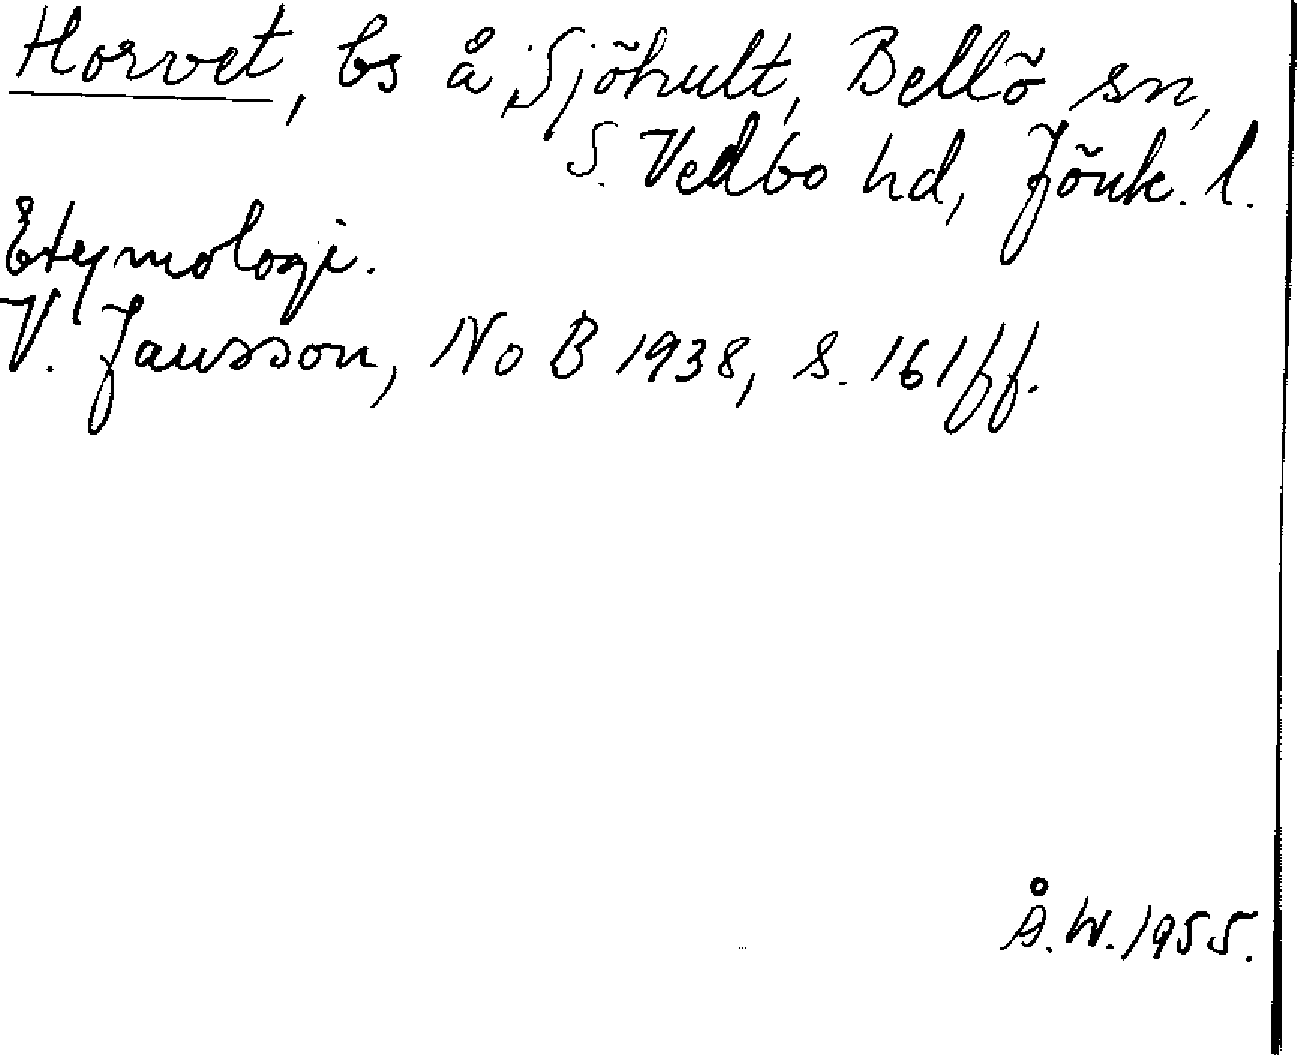 Horvet, bs å Sjöhult, Bellö sn,
S. Vedbo hd, Jönk. l.
Etymologi.
V. Jansson, NoB 1938, s. 161 ff.
Å.W. 1955.